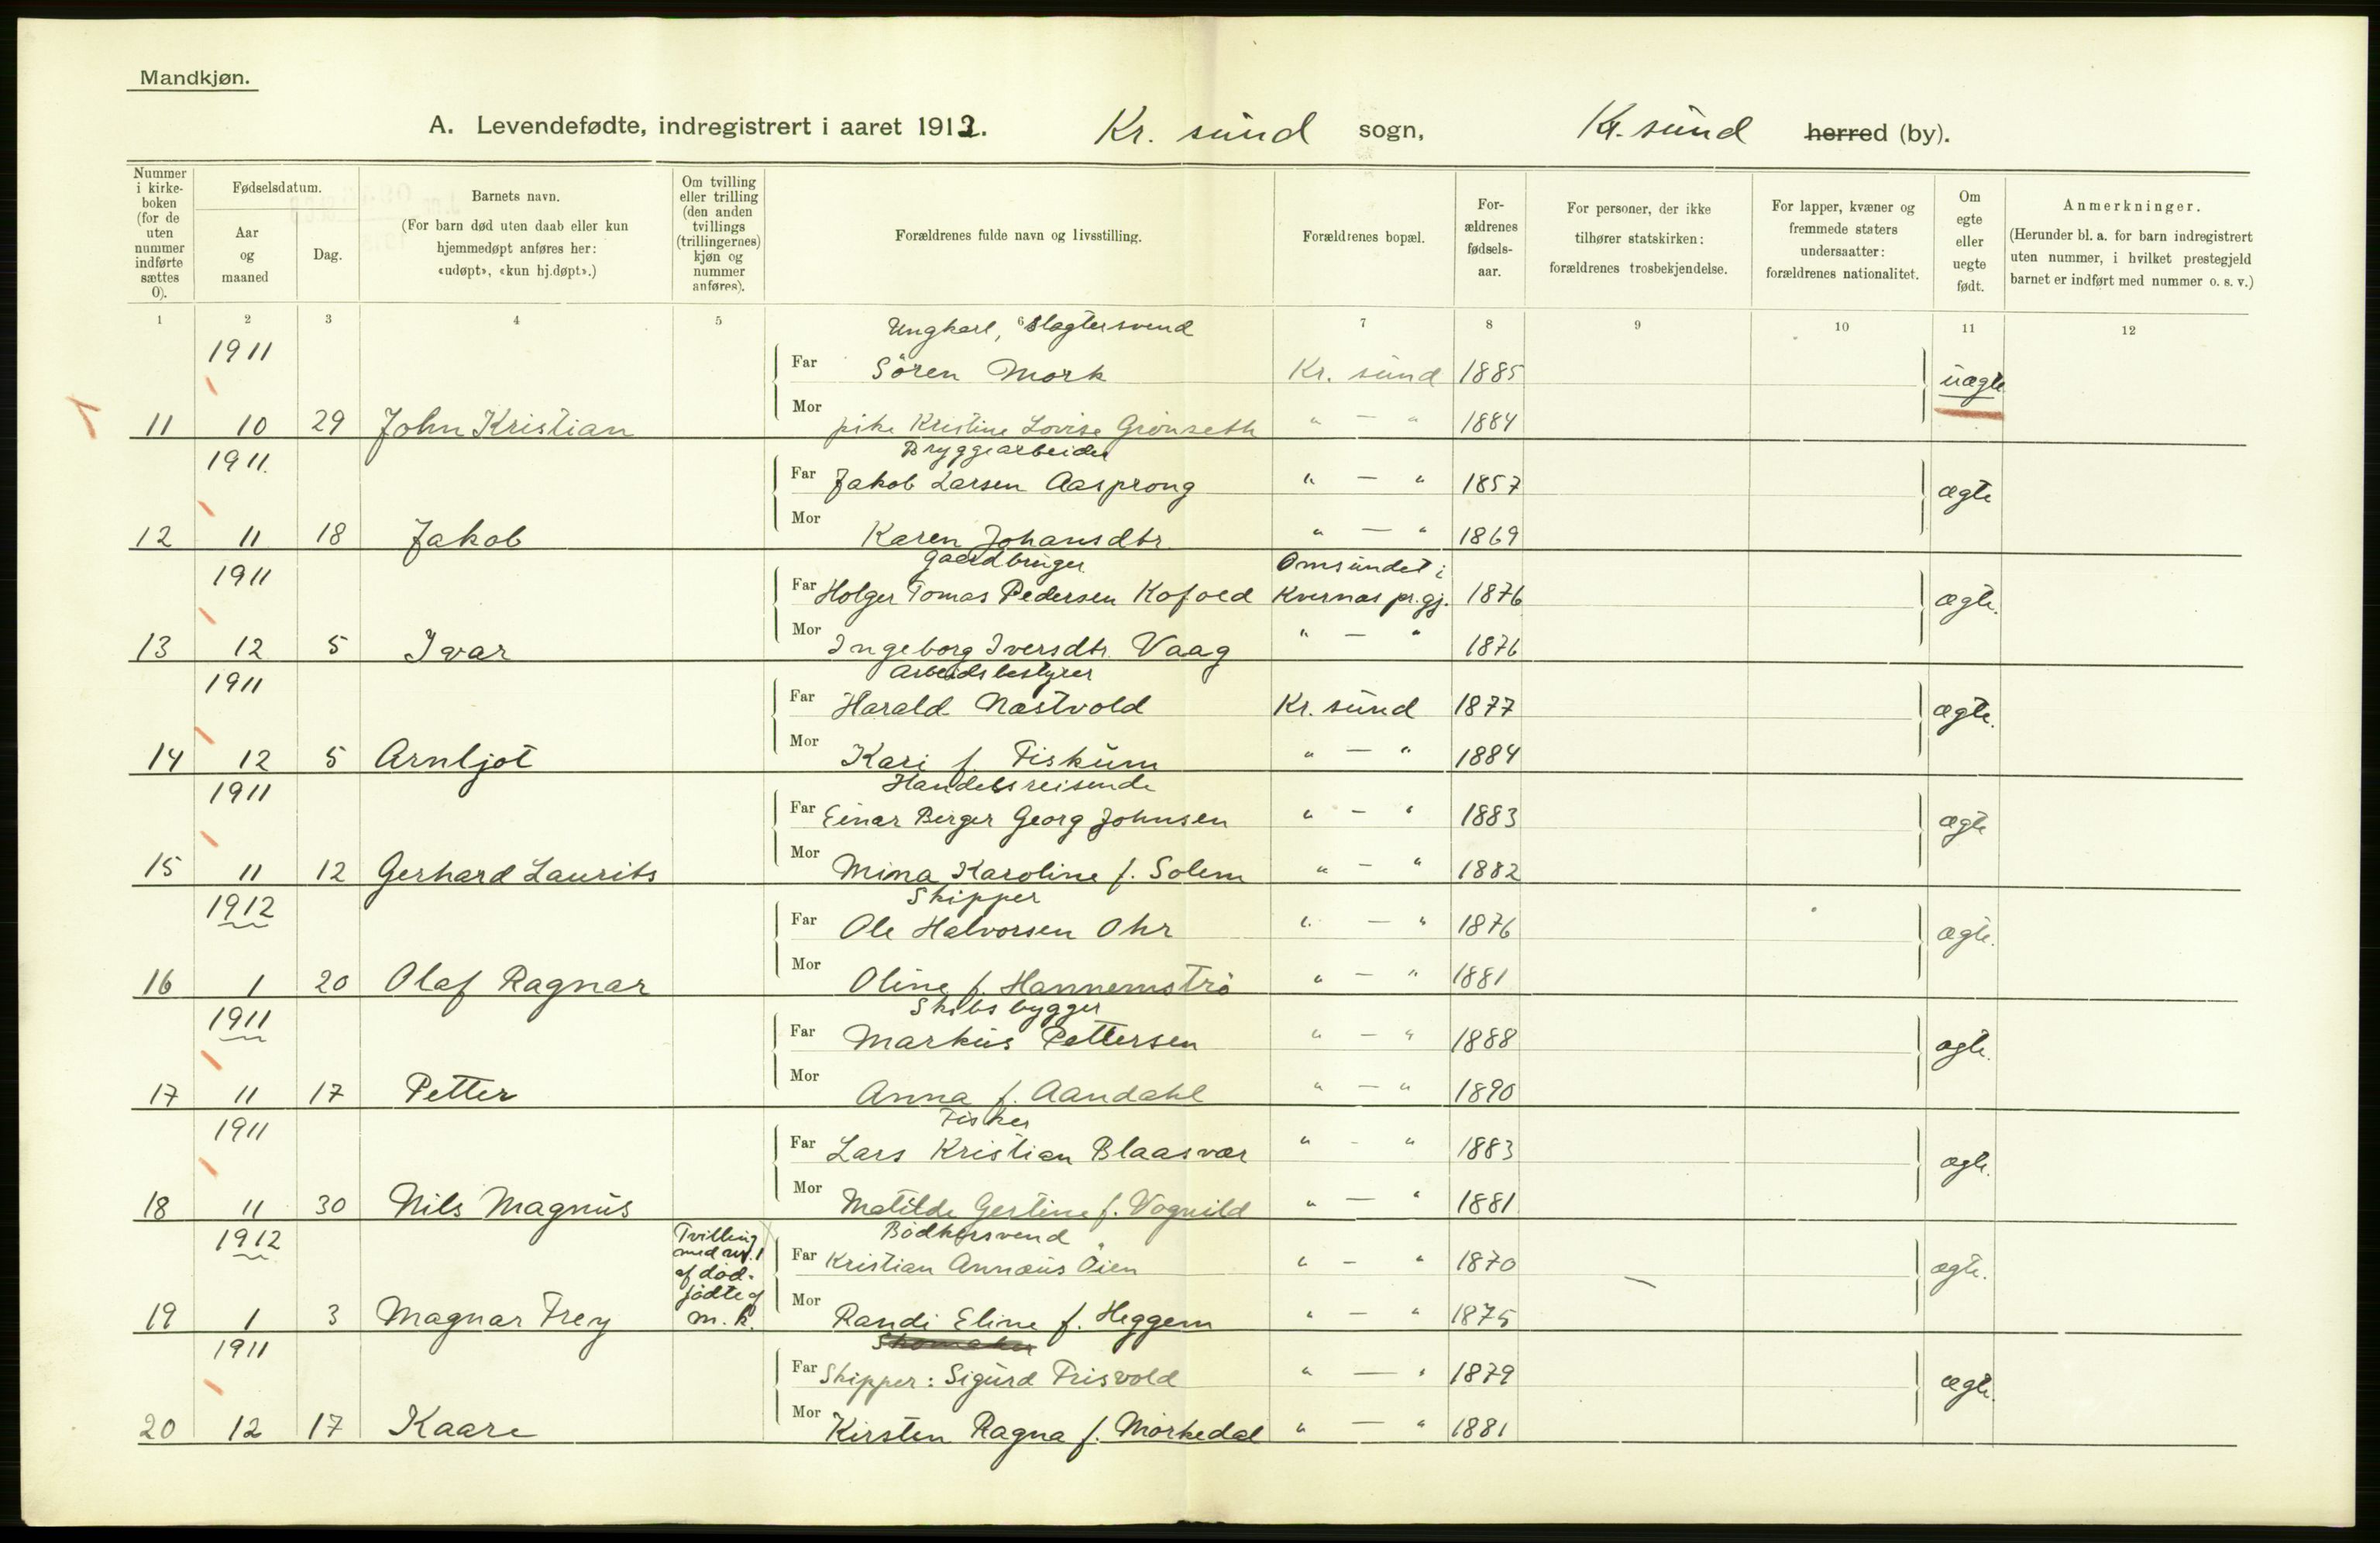 Mandkjøn.
A. Levendefødte, indregistrert i aaret 1912. Kr. sund sogn, Kr. sund herred (by).
Nummer i kirkeboken (for de uten nummer indførte sættes 0).
Fødselsdatum.
Aar og maaned
Dag.
Barnets navn.
(For barn død uten daab eller kun hjemmedøpt anføres her: «udøpt», «kun hj.døpt».)
Om tvilling eller trilling (den anden tvillings (trillingernes) kjøn og nummer anføres).
Forældrenes fulde navn og livsstilling.
Forældrenes bopæl.
Forældrenes fødselsaar.
For personer, der ikke tilhører statskirken: forældrenes trosbekjendelse.
For lapper, kvæner og fremmede staters undersaatter: forældrenes nationalitet.
Om egte eller uegte født.
Anmerkninger.
(Herunder bl. a. for barn indregistrert uten nummer, i hvilket prestegjeld barnet er indført med nummer o. s. v.)
1 2 3 4 5 6 7 8 9 10 11 12
1911 Ungkarl, Slagtersvend
Far Sören Mork Kr. sund 1885 uægte
11 10 29 John Kristian Mor pike Kristine Lovise Grönseth " — " 1884
1911. Bryggearbeider
Far Jakob Larsen Aasprong " — " 1857 ægte
12 11 18 Jakob Mor Karen Johansdtr. " — " 1869
1911 Gaardbruger Omsundet i
Far Holger Tomas Pedersen Kofoed Kvernæs pr.gj. 1876 ægte.
13 12 5 Ivar Mor Ingeborg Iversdtr. Vaag " — " 1876
1911 Arbeidsbestyrer
Far Harald Næstvold Kr. sund 1877 ægte.
14 12 5 Arnljot Mor Kari f. Fiskum " — " 1884
1911 Handelsreisende
Far Einar Berger Georg Johnsen " — " 1883 ægte
15 11 12 Gerhard Laurits Mor Mina Karoline f. Solem " — " 1882
1912 Skipper
Far Ole Halvorsen Ohr " — " 1876 ægte.
16 1 20 Olaf Ragnar Mor Oline f. Hannemströ " — " 1881
1911 Skibsbygger
Far Markus Pettersen " — " 1888 ægte.
17 11 17 Petter Mor Anna f. Aandahl " — " 1890
1911 Fisker
Far Lars Kristian Blaasvær " - " 1883 ægte.
18 11 30 Nils Magnus Mor Matilde Gertine f. Vognild " — " 1881
1912 Tvilling med nr. 1 af dödfödte af m.k. Bödkersvend
Far Kristian Annæus Öien " — " 1870 ægte.
19 1 3 Magnar Frey Mor Randi Eline f. Heggem " — " 1875
1911 Skomaker
Far Skipper: Sigurd Frisvold " — " 1879 ægte.
20 12 17 Kaare Mor Kirsten Ragna f. Mörkedal " — " 1881